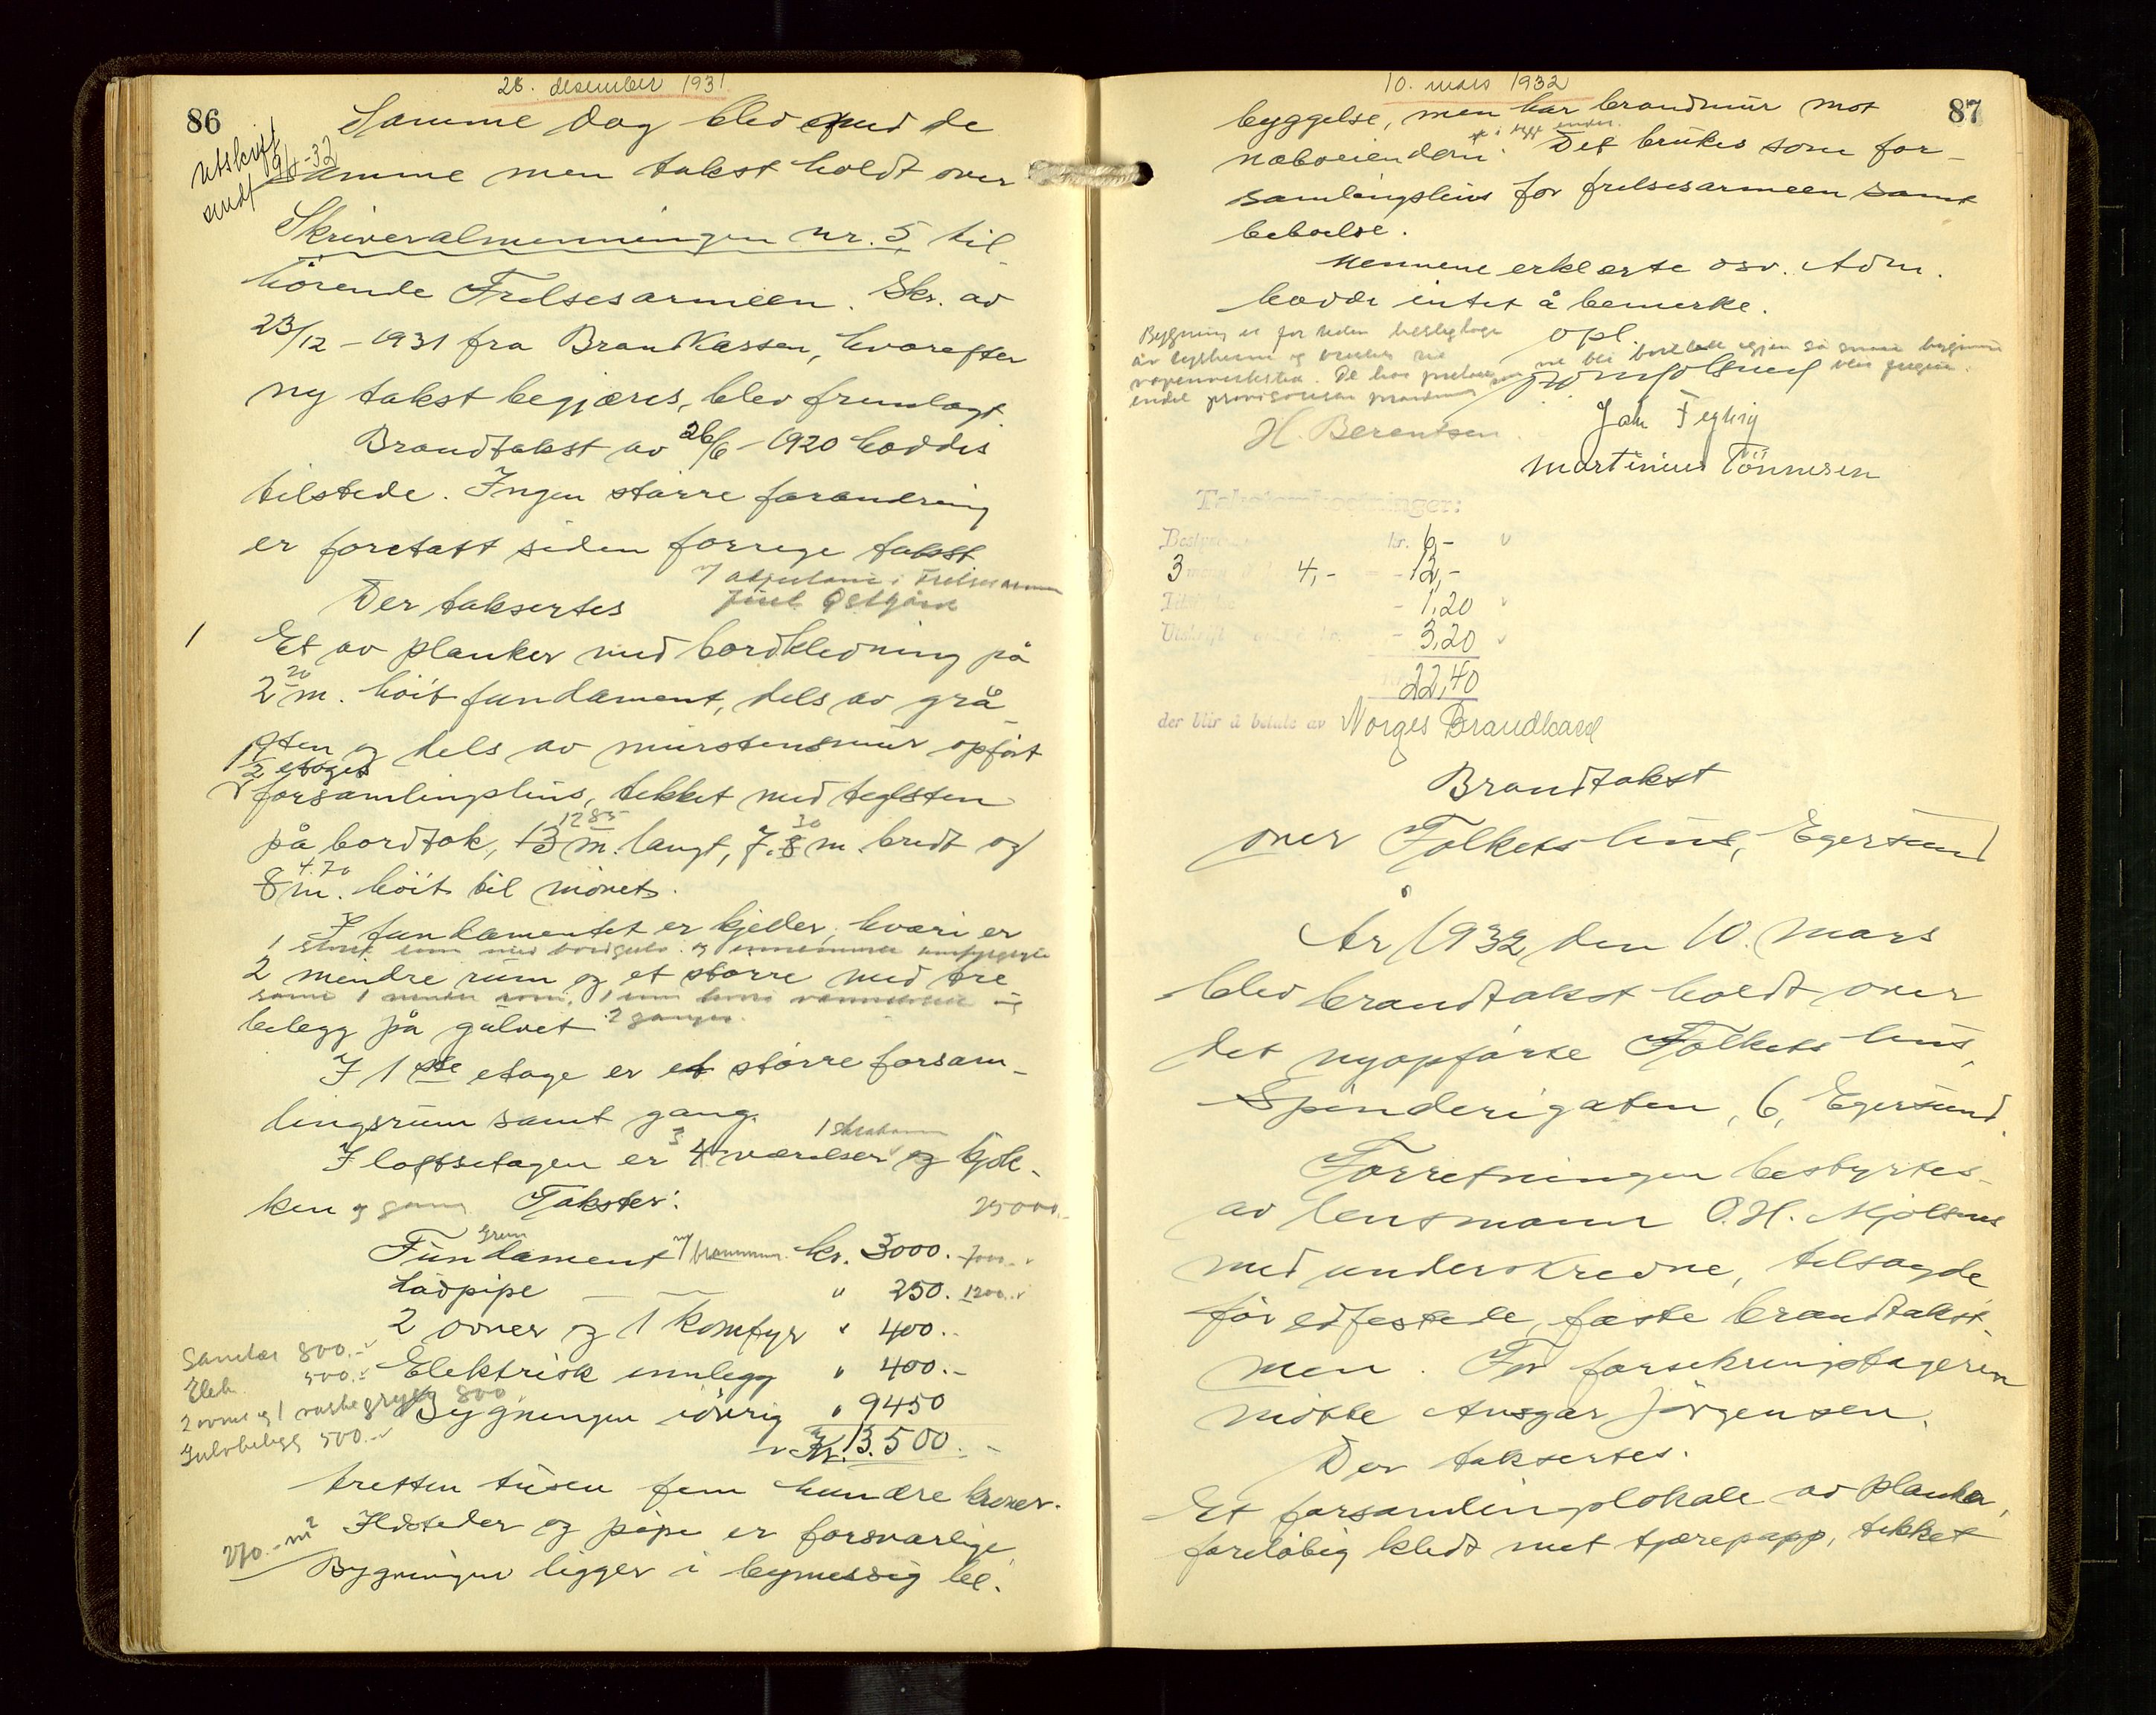 86
28. desember 1931
Utskrift
sendt 9/4-32
Samme dag blev med de
samme men takst holdt over
Skriveralmenningen nr. 5 til-
hørende Frelsesarmeen. Skr. av
23/12 - 1931 fra Brandkassen, hvorefter
ny takst begjæres, blev fremlagt.
Brandtakst av 26/6 - 1920 haddes
tilstede. Ingen større forandring
er foretatt siden forrige takst
Der taksertes
1 Et av planker med bordkledning på
2 m. høit fundament, dels av grå
20
sten og dels av murstensmur opført
1 1/2 etages
forsamlingshus, tekket med teglsten
på bordtak, 13 m. langt, 7.8 m. bredt og
12 85
30
8 m. høit til mønet.
4.70
I fundamentet er kjeller, hvori er
2 mindre rum og et større med tre
belegg på gulvet 2 ganger.
I 1ste etage er et større forsam-
lingsrum samt gang.
I loftsetagen er 4 værelser og kjøk-
3
ken og gang Takster:
25000.-
Fundament kr. 3000.
Grun
7000.-
Ladpipe " 250. 1200.-
2 ovner og 1 komfyr " 400.-
Sanitær 800.-
Elektrisk innlegg " 400.-
Elek. 500.-
Bygningen iøvrig " 9450
2 ovne og 1 vaskegryte 800.
Kr. 13.500.-
Gulvbelegg 500.-
tretten tusen fem hundre kroner.
Ildsteder og pipe er forsvarlige.
270.- m²
Bygningen ligger i bymessig be-
87
10. mars 1932
byggelse, men har brandmur mot
naboeiendom. Det brukes som for-
samlingshus for frelsesarmeen samt
beboelse.
Mennene erklærte osv. Adm.
hadde intet å bemerke.
opl.
Bygning er for tiden beslaglagt
O. H. Mjølsnes
H. Berentsen.
Jah Tegling
Martinius Tönnesen
Takstomkostninger:
kr. 6,-
3 4,- - 12,-
- 1,20
Utskrift - 3,20
22,40
der blir å betale av Norges Brandkasse
Brandtakst
over Folkets hus, Egersund
År 1932 den 10. mars
blev brandtakst holdt over
det nyopførte Folkets hus,
Spinderigaten, 6, Egersund.
Forretningen bestyrtes
av lensmann O. H. Mjølsnes
med underskrevne, tilsagde
før edfestede, faste brandtakst-
men. For forsikringstageren
møtte Ansgar Jørgensen.
Der taksertes.
Et forsamlingslokale av planker,
foreløbig kledt met tjærepapp, tekket